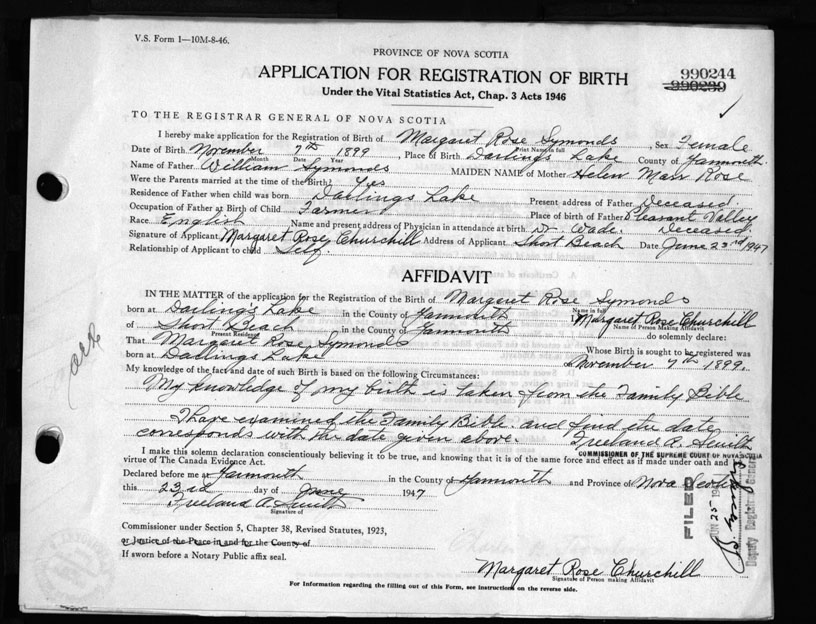 V.S. Form 1—10M-8-46.
PROVINCE OF NOVA SCOTIA
APPLICATION FOR REGISTRATION OF BIRTH
990244
990239
Under the Vital Statistics Act, Chap. 3 Acts 1946
TO THE REGISTRAR GENERAL OF NOVA SCOTIA
I hereby make application for the Registration of Birth of Margaret Rose Symonds, Sex Female
Print Name in full
Date of Birth November 7th 1899, Place of Birth Darlings Lake County of Yarmouth.
Month Date Year
Name of Father William Symonds MAIDEN NAME of Mother Helen Mary Rose
Were the Parents married at the time of the Birth? Yes
Residence of Father when child was born Darlings Lake Present address of Father Deceased.
Occupation of Father at Birth of Child Farmer Place of birth of Father Pleasant Valley
Race English Name and present address of Physician in attendance at birth Dr. Wade. Deceased.
Signature of Applicant Margaret Rose Churchill Address of Applicant Short Beach Date June 23rd 1947
Relationship of Applicant to child Self
AFFIDAVIT
IN THE MATTER of the application for the Registration of the Birth of Margaret Rose Symonds
Name in full
born at Darling's Lake in the County of Yarmouth I Margaret Rose Churchill
Name of Person Making Affidavit
of Short Beach in the County of Yarmouth do solemnly declare:
Present Residence
That Margaret Rose Symonds Whose Birth is sought to be registered was
born at Darlings Lake November 7th 1899.
My knowledge of the fact and date of such Birth is based on the following Circumstances:
My knowledge of my birth is taken from the Family Bible
I have examined the Family Bible and find the date
corresponds with the date given above. Freeland A. Smith
COMMISSIONER OF THE SUPREME COURT OF NOVA SCOTIA
I make this solemn declaration conscientiously believing it to be true, and knowing that it is of the same force and effect as if made under oath and by
virtue of The Canada Evidence Act.
Declared before me at Yarmouth in the County of Yarmouth and Province of Nova Scotia
this 23rd day of June 1947
Freeland A. Smith
Signature of
FILED
JUN 25 194
Deputy Registrar General
Commissioner under Section 5, Chapter 38, Revised Statutes, 1923,
or Justice of the Peace in and for the County of
If sworn before a Notary Public affix seal.
Margaret Rose Churchill
Signature of Person making Affidavit
For Information regarding the filling out of this Form, see instructions on the reverse side.